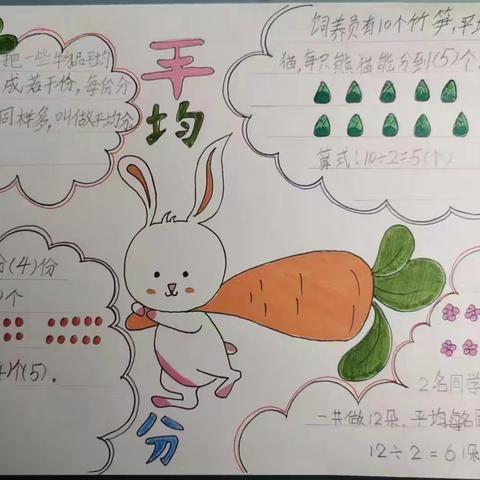 平
均
分
把一些物品平均
成若干份,每份分
同样多,叫做平均分
饲养员有10个竹笋,平均
猫,每只熊猫能分到(5)个
算式:10÷2=5(个)
分(4)份
个
个(5).
2名同学
一共做12朵,平均每名同
12÷2=6(朵